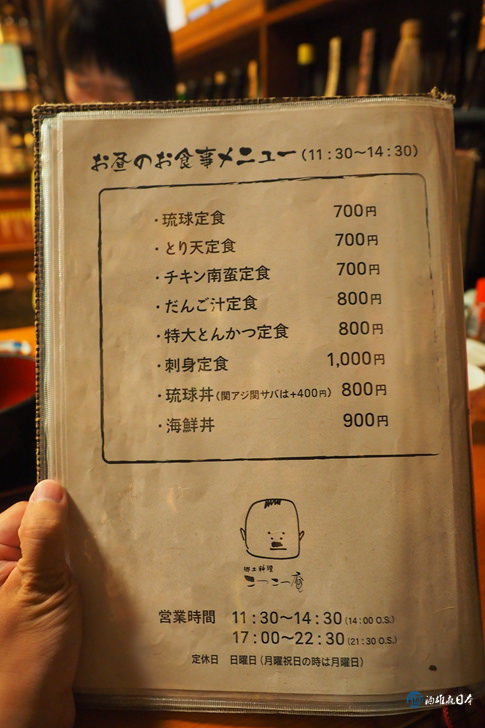 お昼のお食事メニュー(11:30〜14:30)
・琉球定食 700円
・とり天定食 700円
・チキン南蛮定食 700円
・だんご汁定食 800円
・特大とんかつ定食 800円
・刺身定食 1,000円
・琉球丼(関アジ関サバは+400円) 800円
・海鮮丼 900円
郷土料理
こつこつ庵
営業時間 11:30〜14:30(14:00 O.S.)
17:00〜22:30(21:30 O.S.)
定休日 日曜日(月曜祝日の時は月曜日)
酒雄在日本